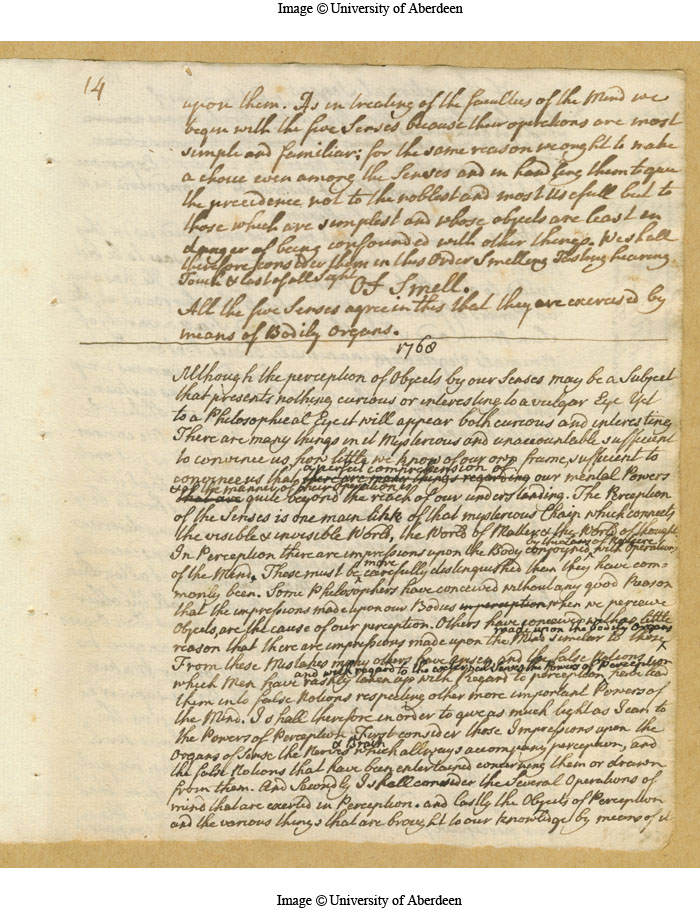 Image © University of Aberdeen
14
upon them. As in treating of the faculties of the Mind we
begin with the five Senses because their operations are most
simple and familiar; for the same reason we ought to make
a choice even among the Senses and in handling them to give
the precedence not to the noblest and most Usefull but to
those which are simplest and whose objects are least in
danger of being confounded with other things. We shall
therefore consider them in this Order Smelling Tasting hearing
Touch & last of all Sight
Of Smell.
All the five Senses agree in this that they are exercised by
means of Bodily Organs.
1768
Although the perception of Objects by our Senses may be a Subject
that presents nothing curious or interesting to a vulgar Eye Yet
to a Philosophical Eye it will appear both curious and interesting
There are many things in it Mysterious and unaccountable sufficient
to convince us how little we know of our own frame, sufficient to
a perfect comprehension of
convince us that there are many things regarding our mental Powers
& of the manner of their operations is
that are quite beyond the reach of our understanding. The Perception
of the Senses is one main link of that mysterious Chain which connects
the visible & invisible World, the World of Matter & the World of thought
by the Laws of Nature
In Perception there are impressions upon the Body conjoyned with Operations
of the Mind. These must be more carefully distinguished then they have com-
monly been. Some Philosophers have conceived without any good Reason
that the impressions made upon our Bodies in perception when we perceive
Objects are the cause of our perception. Others have conceived with as little
made upon the Bodily Organs
reason that there are impressions made upon the Mind similar to those
From these Mistakes many others have arisen and the false Notions
and with regard to the external Senses the Powers of Perception
which Men have rashly taken up with regard to perception have led
them into false Notions respecting other more important Powers of
the Mind. I shall therefore in order to give as much light as I can to
the Powers of Perception First consider those Impressions upon the
& Brain
Organs of Sense the Nerves which allways accompany perception, and
the false Notions that have been entertained concerning them or drawn
from them. And Secondly I shall consider the Several Operations of
mind that are exerted in Perception. and lastly the Objects of Perception
and the various things that are brought to our knowledge by means of it
Image © University of Aberdeen